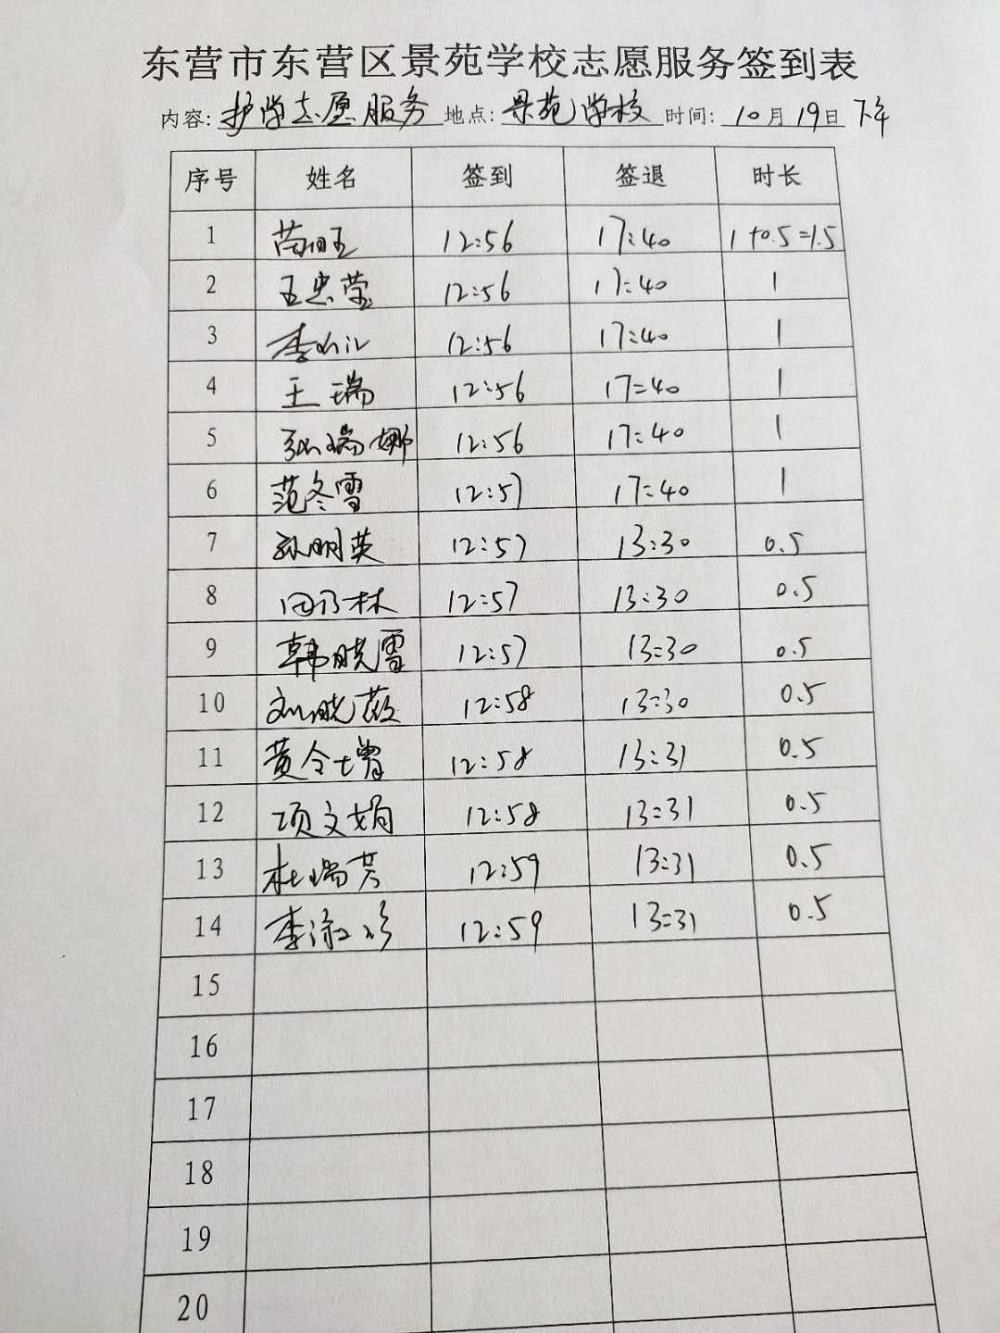 东营市东营区景苑学校志愿服务签到表
内容: 护学志愿服务 地点: 景苑学校 时间: 10月19日 下午
序号 姓名 签到 签退 时长
1 苗旺 12:56 17:40 1+0.5=1.5
2 王忠莹 12:56 17:40 1
3 李 12:56 17:40 1
4 王瑞 12:56 17:40 1
5 张瑞娜 12:56 17:40 1
6 范冬雪 12:57 17:40 1
7 孙明英 12:57 13:30 0.5
8 田乃林 12:57 13:30 0.5
9 韩晓雪 12:57 13:30 0.5
10 刘晓薇 12:58 13:30 0.5
11 黄令增 12:58 13:31 0.5
12 项文娟 12:58 13:31 0.5
13 杜瑞芳 12:59 13:31 0.5
14 李淑珍 12:59 13:31 0.5
15
16
17
18
19
20